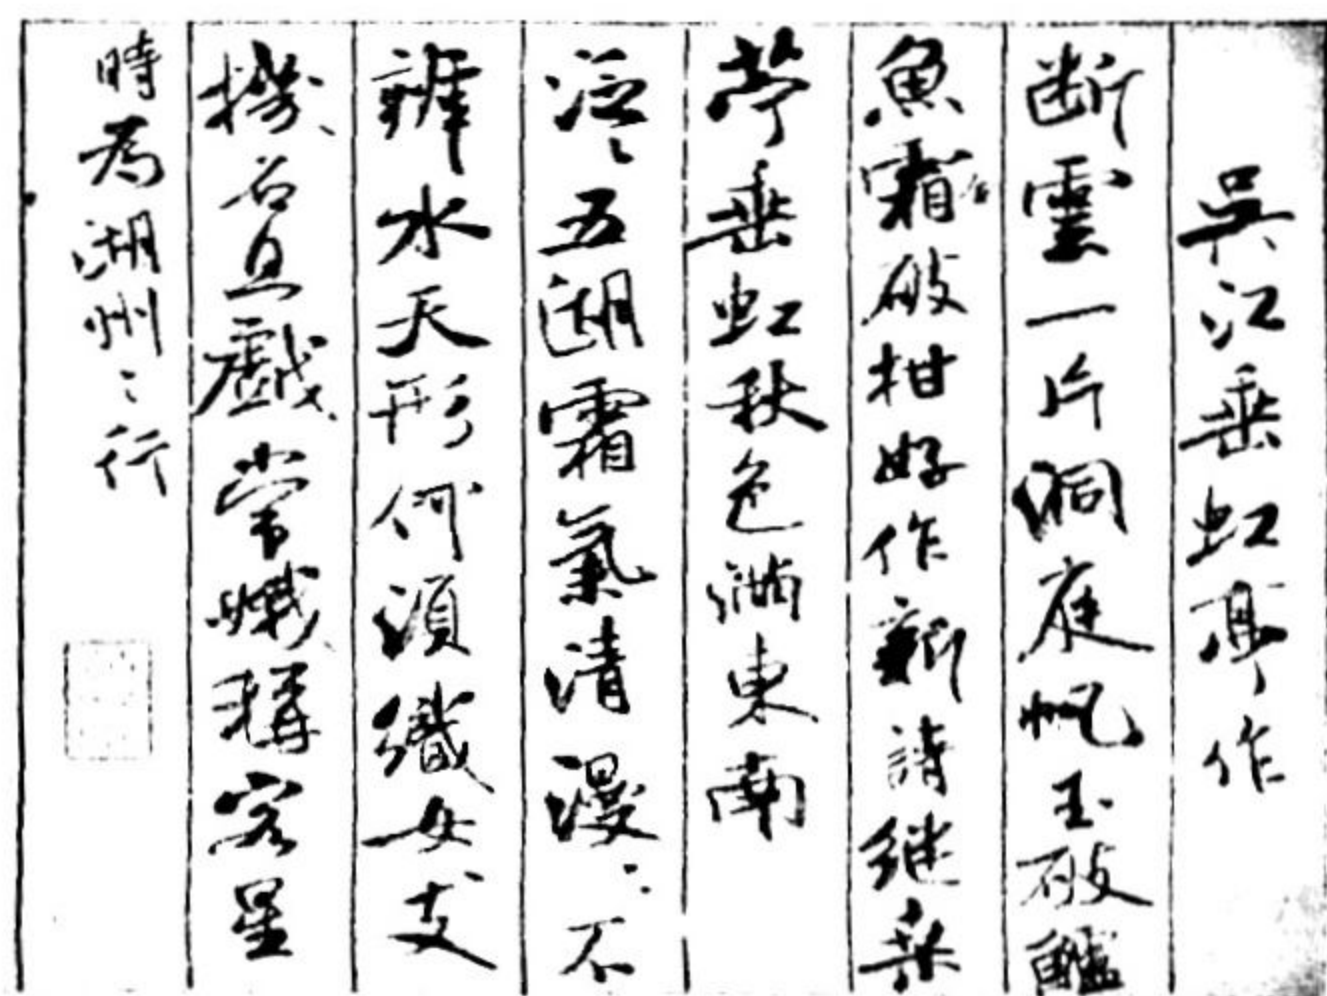 吳江垂虹亭作
断雲一片洞庭帆玉破鱸
魚霜破柑好作新詩继桑
苧垂虹秋色滿東南
泛〻五湖霜氣清漫〻不
辨水天形何須織女支
機石且戲常娥稱客星
時為湖州〻行